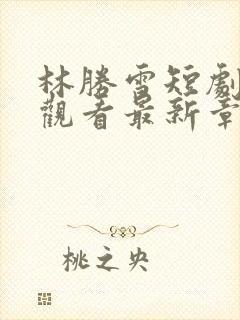 林勝雪短劇
觀看最新章
桃之央